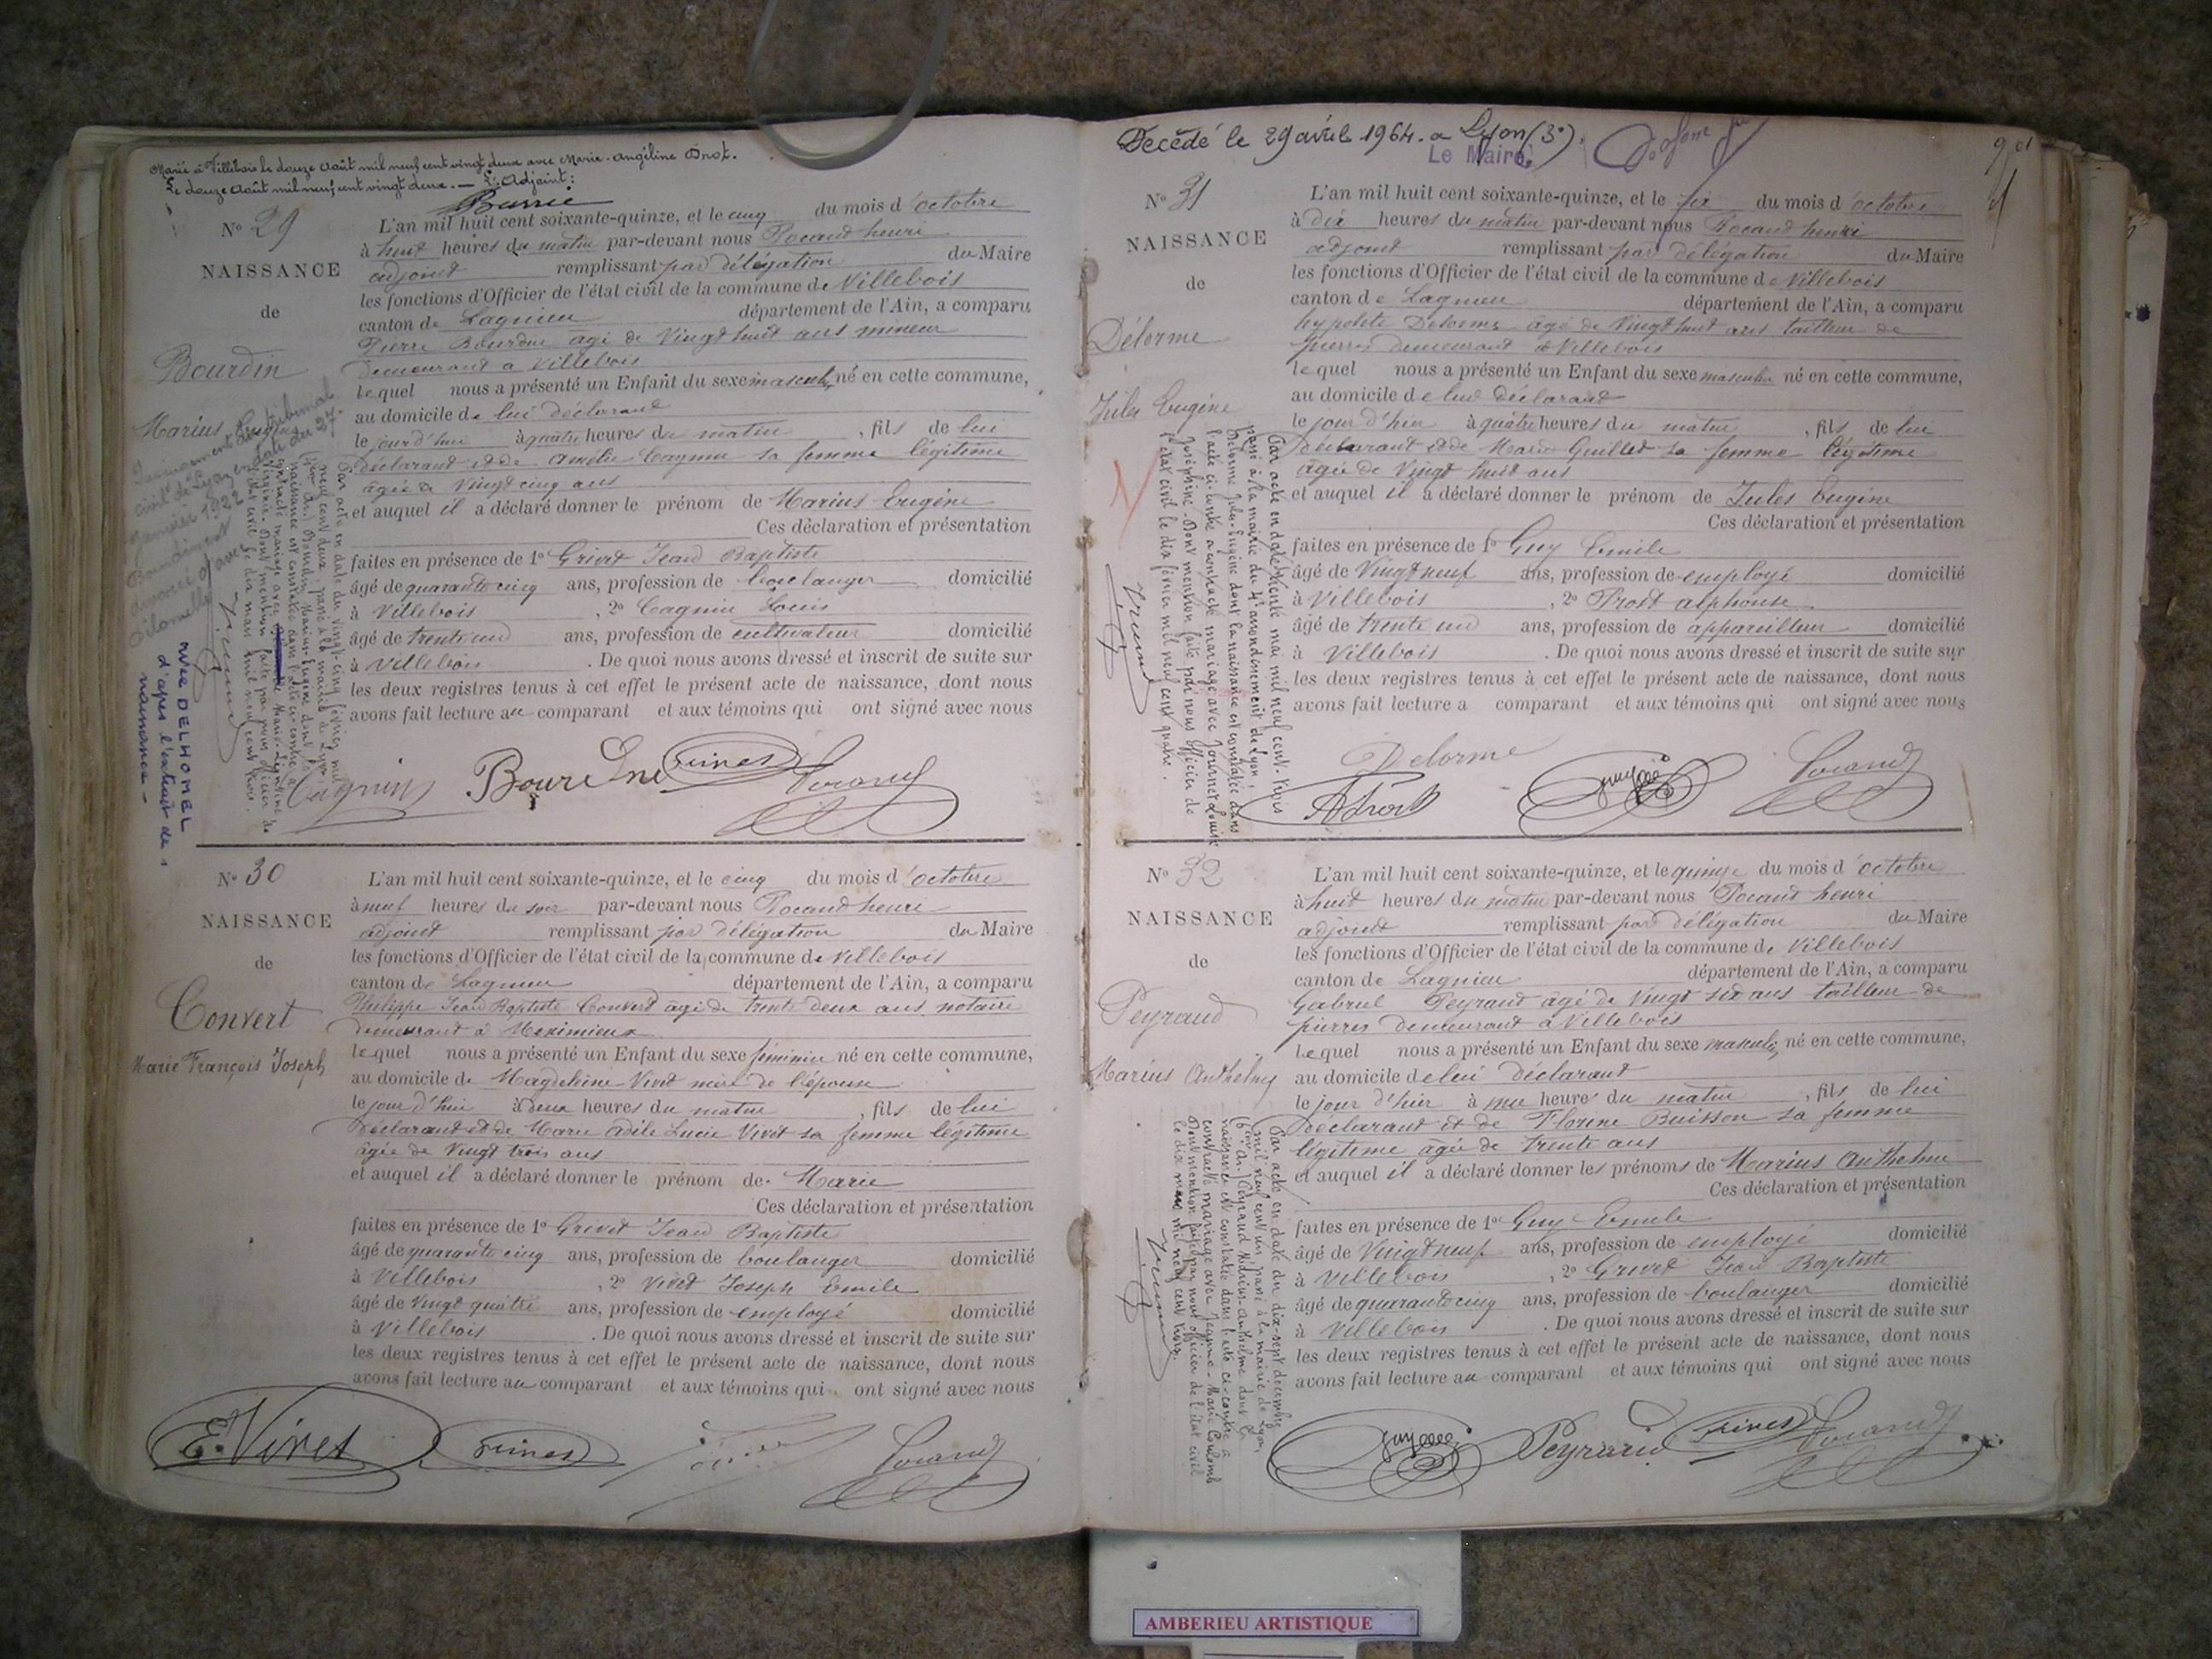 Marié à Villebois le douze Août mil neuf cent vingt deux avec Marie-Angéline Brot.
Le douze Août mil neuf cent vingt deux. — L'Adjoint:
No 29
NAISSANCE
de
Bourdin
Marius Eugène
L'an mil huit cent soixante-quinze, et le cinq du mois d'octobre
à huit heures du matin par-devant nous Pocand henri
adjoint remplissant par délégation du Maire
les fonctions d'Officier de l'état civil de la commune de Villebois
canton de Lagnieu département de l'Ain, a comparu
Pierre Bourdin âgé de Vingt huit ans mineur
demeurant a Villebois
lequel nous a présenté un Enfant du sexe masculin né en cette commune,
au domicile de lui déclarant
le jour d'hui à quatre heures du matin, fils de lui
déclarant et de Amélie Cagnin sa femme légitime
âgée de Vingt cinq ans
et auquel il a déclaré donner le prénom de Marius Eugène
Ces déclaration et présentation
faites en présence de 1o Grivet Jean Baptiste
âgé de quarante cinq ans, profession de boulanger domicilié
à Villebois, 2o Cagnin Louis
âgé de trente un ans, profession de cultivateur domicilié
à Villebois. De quoi nous avons dressé et inscrit de suite sur
les deux registres tenus à cet effet le présent acte de naissance, dont nous
avons fait lecture au comparant et aux témoins qui ont signé avec nous
Par acte en date du vingt-cinq février mil
neuf cent deux, passé à la mairie de Lyon
avec DELHOMEL
d'après l'extrait de
naissance -
Cagnin Bourdin
No 30
NAISSANCE
de
Convert
Marie François Joseph
L'an mil huit cent soixante-quinze, et le cinq du mois d'octobre
à neuf heures du soir par-devant nous Pocand henri
adjoint remplissant par délégation du Maire
les fonctions d'Officier de l'état civil de la commune de Villebois
canton de Lagnieu département de l'Ain, a comparu
Philippe Jean Baptiste Convert âgé de trente deux ans notaire
demeurant à Meximieux
lequel nous a présenté un Enfant du sexe féminin né en cette commune,
au domicile de Magdeleine Vivet mère de l'épouse
le jour d'hui à deux heures du matin, fils de lui
Déclarant et de Marie Adèle Lucie Vivet sa femme légitime
âgée de Vingt trois ans
et auquel il a déclaré donner le prénom de Marie
Ces déclaration et présentation
faites en présence de 1o Grivet Jean Baptiste
âgé de quarante cinq ans, profession de boulanger domicilié
à Villebois, 2o Vivet Joseph Emile
âgé de Vingt quatre ans, profession de employé domicilié
à Villebois. De quoi nous avons dressé et inscrit de suite sur
les deux registres tenus à cet effet le présent acte de naissance, dont nous
avons fait lecture au comparant et aux témoins qui ont signé avec nous
E. Vivet
Décédé le 29 avril 1964. a Lyon (3e).
Le Maire,
No 31
NAISSANCE
de
Délorme
Jules Eugène
L'an mil huit cent soixante-quinze, et le six du mois d'octobre
à dix heures du matin par-devant nous Pocand henri
adjoint remplissant par délégation du Maire
les fonctions d'Officier de l'état civil de la commune de Villebois
canton de Lagnieu département de l'Ain, a comparu
hypolite Delorme âgé de Vingt huit ans tailleur de
pierres demeurant à Villebois
lequel nous a présenté un Enfant du sexe masculin né en cette commune,
au domicile de lui déclarant
le jour d'hier à quatre heures du matin, fils de lui
Déclarant et de Marie Guillet sa femme légitime
âgée de Vingt huit ans
et auquel il a déclaré donner le prénom de Jules Eugène
Ces déclaration et présentation
faites en présence de 1o Guy Emile
âgé de Vingt neuf ans, profession de employé domicilié
à Villebois, 2o Prost alphonse
âgé de trente un ans, profession de appareilleur domicilié
à Villebois. De quoi nous avons dressé et inscrit de suite sur
les deux registres tenus à cet effet le présent acte de naissance, dont nous
avons fait lecture a comparant et aux témoins qui ont signé avec nous
Par acte en date trente mai mil neuf cent-trois
passé à la mairie du 4e arrondissement de Lyon
Delorme Jules-Eugène dont la naissance est constatée dans
l'acte ci-contre a contracté mariage avec Journet Louise
Joséphine. Dont mention faite par nous officier de
l'état civil le dix février mil neuf cent quatre.
Delorme
AProst
No 32
NAISSANCE
de
Peyraud
Marius Anthelme
L'an mil huit cent soixante-quinze, et le quinze du mois d'octobre
à huit heures du matin par-devant nous Pocand henri
adjoint remplissant par délégation du Maire
les fonctions d'Officier de l'état civil de la commune de Villebois
canton de Lagnieu département de l'Ain, a comparu
Gabriel Peyraud âgé de Vingt six ans tailleur de
pierres demeurant à Villebois
lequel nous a présenté un Enfant du sexe masculin né en cette commune,
au domicile de lui déclarant
le jour d'hier à une heure du matin, fils de lui
Déclarant et de Florine Buisson sa femme
légitime âgée de trente ans
et auquel il a déclaré donner les prénoms de Marius Anthelme
Ces déclaration et présentation
faites en présence de 1o Guy Emile
âgé de Vingt neuf ans, profession de employé domicilié
à Villebois, 2o Grivet Jean Baptiste
âgé de quarante cinq ans, profession de boulanger domicilié
à Villebois. De quoi nous avons dressé et inscrit de suite sur
les deux registres tenus à cet effet le présent acte de naissance, dont nous
avons fait lecture au comparant et aux témoins qui ont signé avec nous
Par acte en date du dix-sept décembre
mil neuf cent un passé à la mairie de Lyon,
(6me Ar.) Peyraud Marius-Anthelme dont la
naissance est constatée dans l'acte ci-contre a
contracté mariage avec Jeanne-Marie Coulomb
Dont mention faite par nous officier de l'état civil
le dix mars mil neuf cent trois.
Peyraud
AMBERIEU ARTISTIQUE